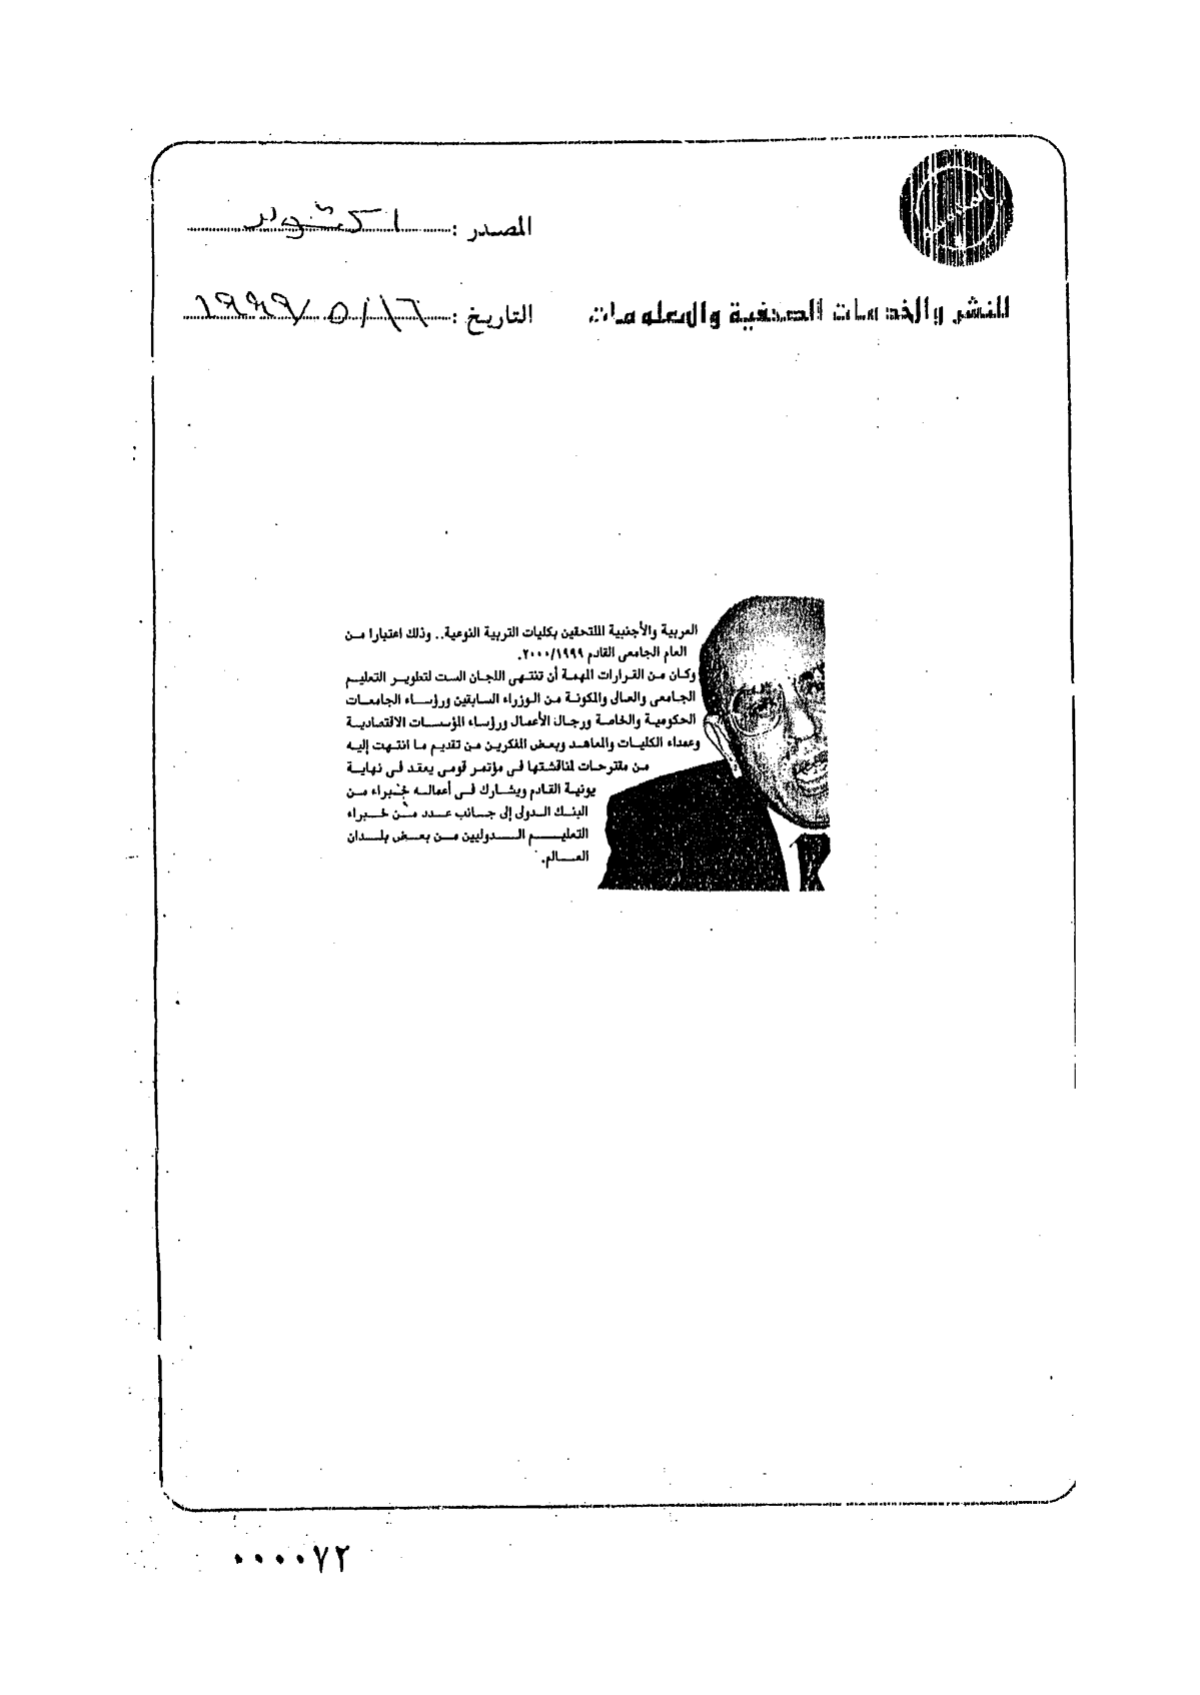 المصدر : اكتوبر
للنشر والخدمات الصحفية والمعلومات
التاريخ : ١٦/ ٥/ ١٩٩٩
العربية والأجنبية الملتحقين بكليات التربية النوعية.. وذلك اعتبارا من
العام الجامعى القادم ٢٠٠٠/١٩٩٩.
وكان من القرارات المهمة أن تنتهى اللجان الست لتطوير التعليم
الجامعى والعالى والمكونة من الوزراء السابقين ورؤساء الجامعات
الحكومية والخاصة ورجال الأعمال ورؤساء المؤسسات الاقتصادية
وعمداء الكليات والمعاهد وبعض المفكرين من تقديم ما انتهت إليه
من مقترحات لمناقشتها فى مؤتمر قومى يعقد فى نهاية
يونية القادم ويشارك فى أعماله خبراء من
البنك الدولى إلى جانب عدد من خبراء
التعليم الدوليين من بعض بلدان
العالم.
٠٠٠٠٧٢